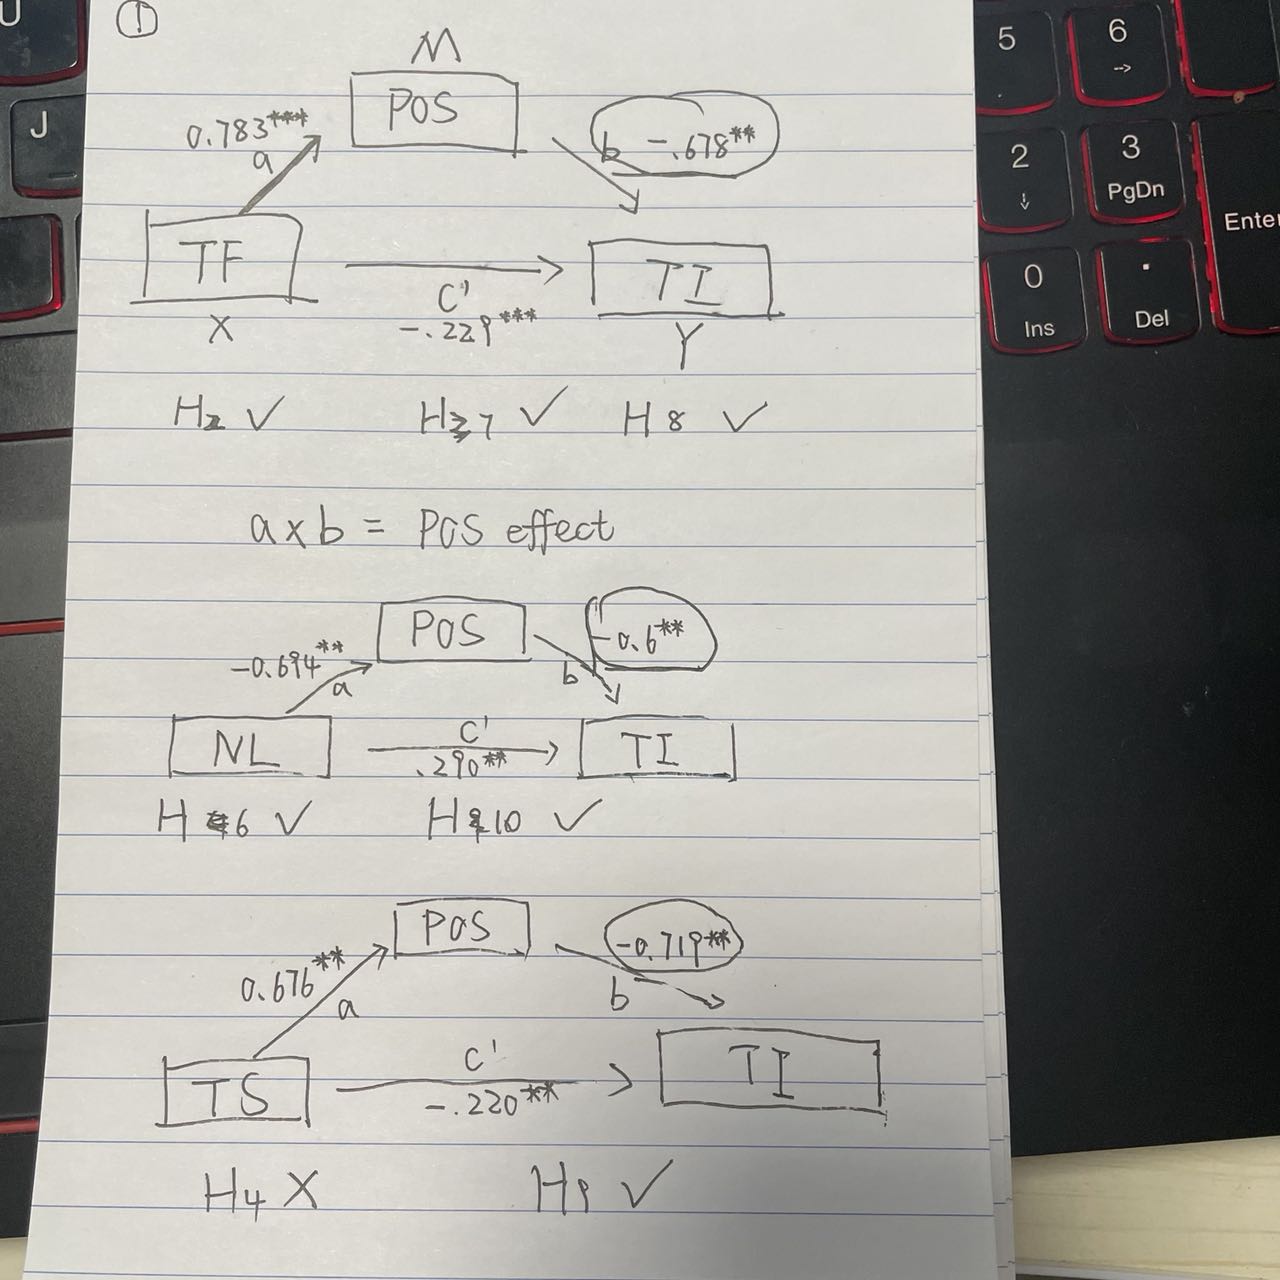 ①
M
POS
0.783***
a
b -.678**
TF
TI
C'
-.229***
X
Y
H2 ✓ H7 ✓ H8 ✓
a x b = POS effect
POS
-0.6**
-0.694**
a
b
NL
C'
.290**
TI
H6 ✓ H10 ✓
POS
-0.719**
0.676**
a
b
TS
C'
-.220**
TI
H4 X H9 ✓
U
J
5
6
2
3
PgDn
Enter
0
Ins
.
Del